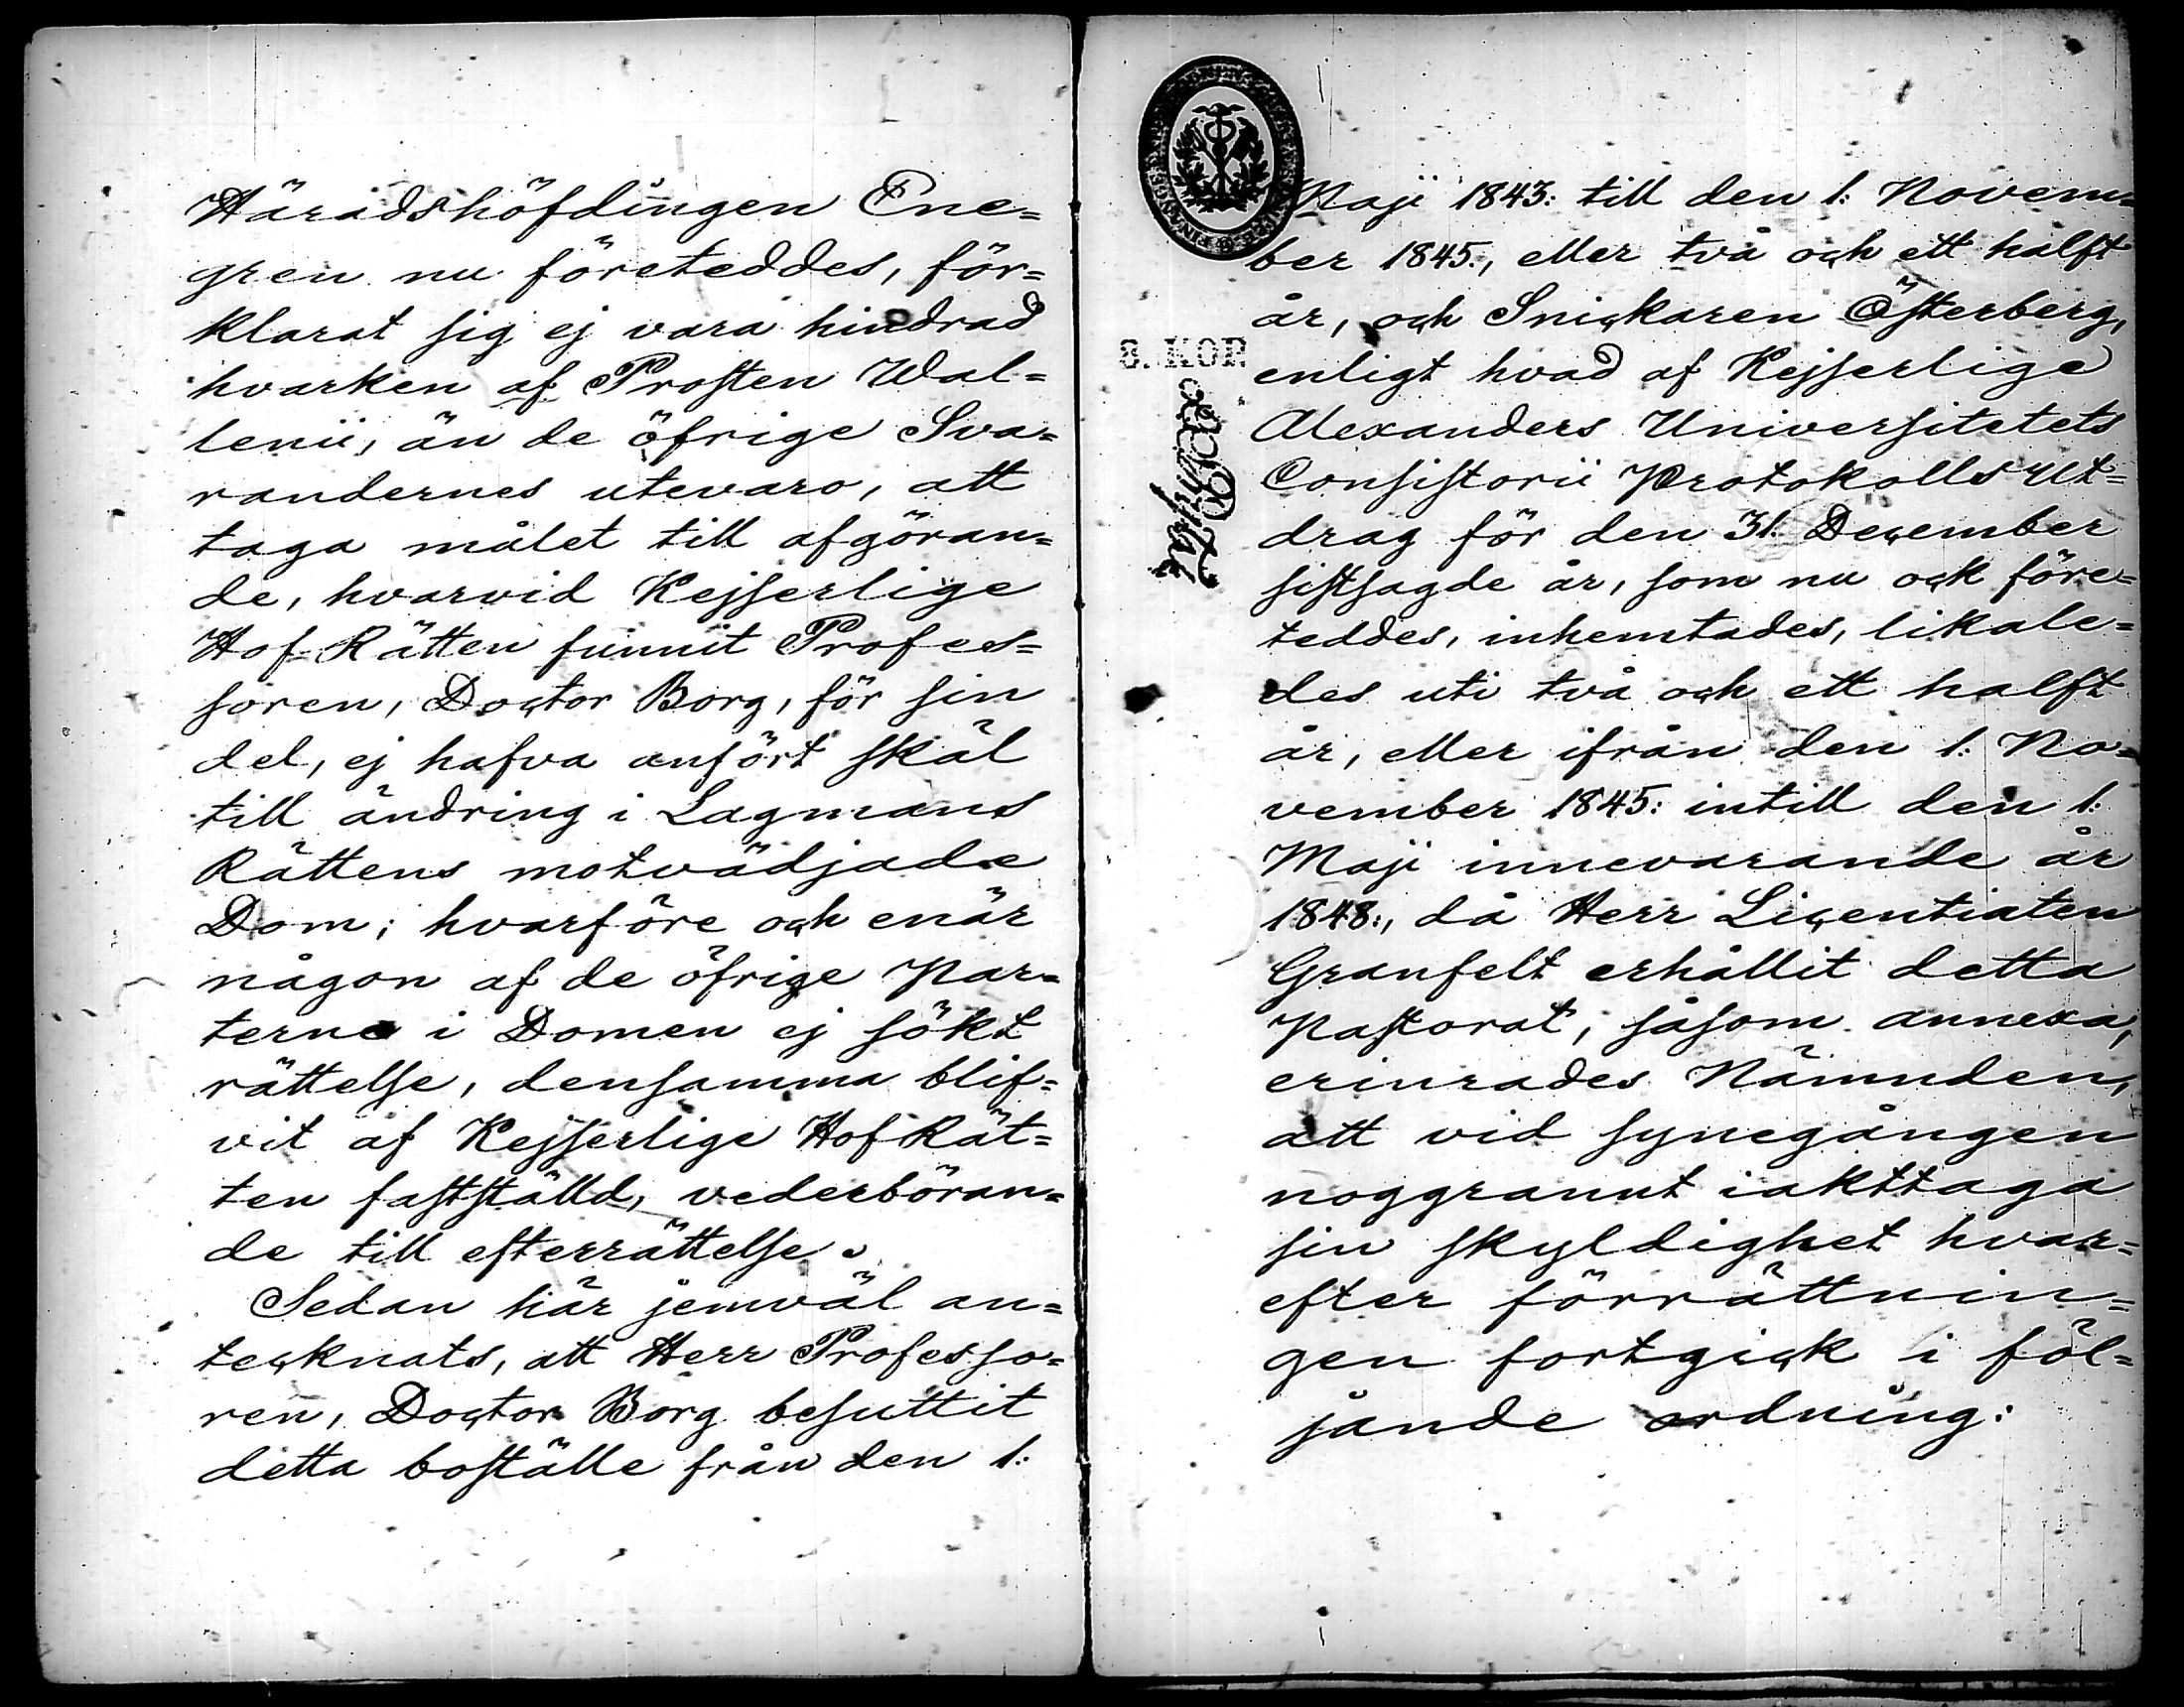 Häradshöfdingen Ene=
gren nu företeddes, för=
klarat sig ej vara hindrad
hvarken af Prosten Wal=
lenii, än de öfrige Sva=
randernes utevaro, att
taga målet till afgöran=
de, hvarvid Kejserlige
Hof-Rätten funnit Profes=
soren, Doctor Borg, för sin
del, ej hafva anfört skäl
till ändring i Lagmans
Rättens motvädjade
Dom; hvarföre och enär
någon af de öfrige Par=
terne i Domen ej sökt
rättelse, densamma blif=
vit af Kejserlige Hof Rät=
ten fastställd, vederböran=
de till efterrättelse.
Sedan här jemväl an=
tecknats, att Herr Professo=
ren, Doctor Borg besuttit
detta boställe från den 1:
Maji 1843: till den 1: Novem=
ber 1845:, eller två och ett halft
år, och Snickaren Österberg,
enligt hvad af Kejserlige
Alexanders Universitetets
Consistorii Protokolls Ut=
drag för den 31. December
sistsagde år, som nu ock före=
teddes, inhemtades, likale=
des uti två och ett halft
år, eller ifrån den 1: No=
vember 1845: intill den 1:
Maji innevarande år
1848:, då Herr Licentiaten
Granfelt erhållit detta
Pastorat, såsom annexa,
erinrades Nämnden,
att vid synegången
noggrannt iakttaga
sin skyldighet hvar=
efter förrättnin=
gen fortgick i föl=
jande ordning:
8. KOP.